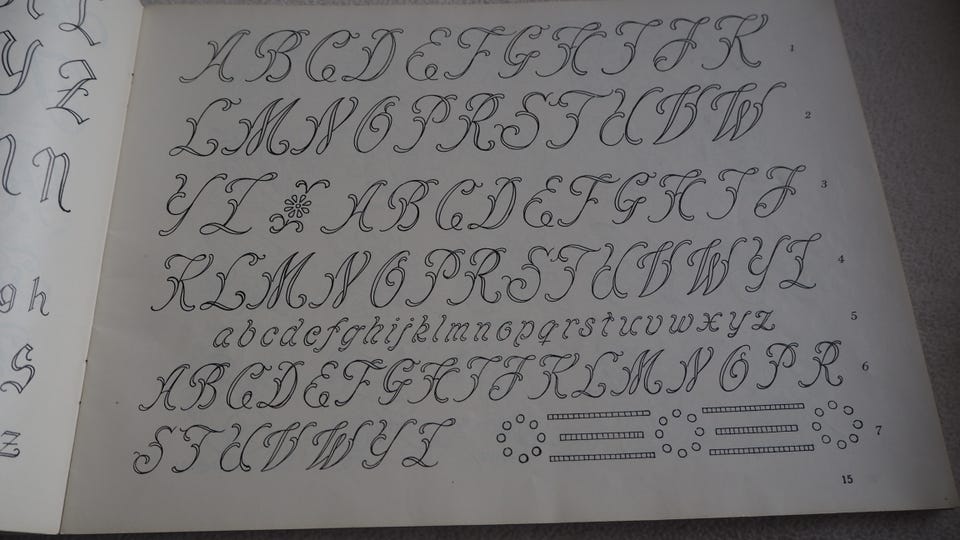 A B C D E F G H I J K 1
L M N O P R S T U V W 2
Y Z A B C D E F G H I J 3
K L M N O P R S T U V W Y Z 4
a b c d e f g h i j k l m n o p q r s t u v w x y z 5
A B C D E F G H I J K L M N O P R 6
S T U V W Y Z 7
15
Y
Z
n
g h
s
z